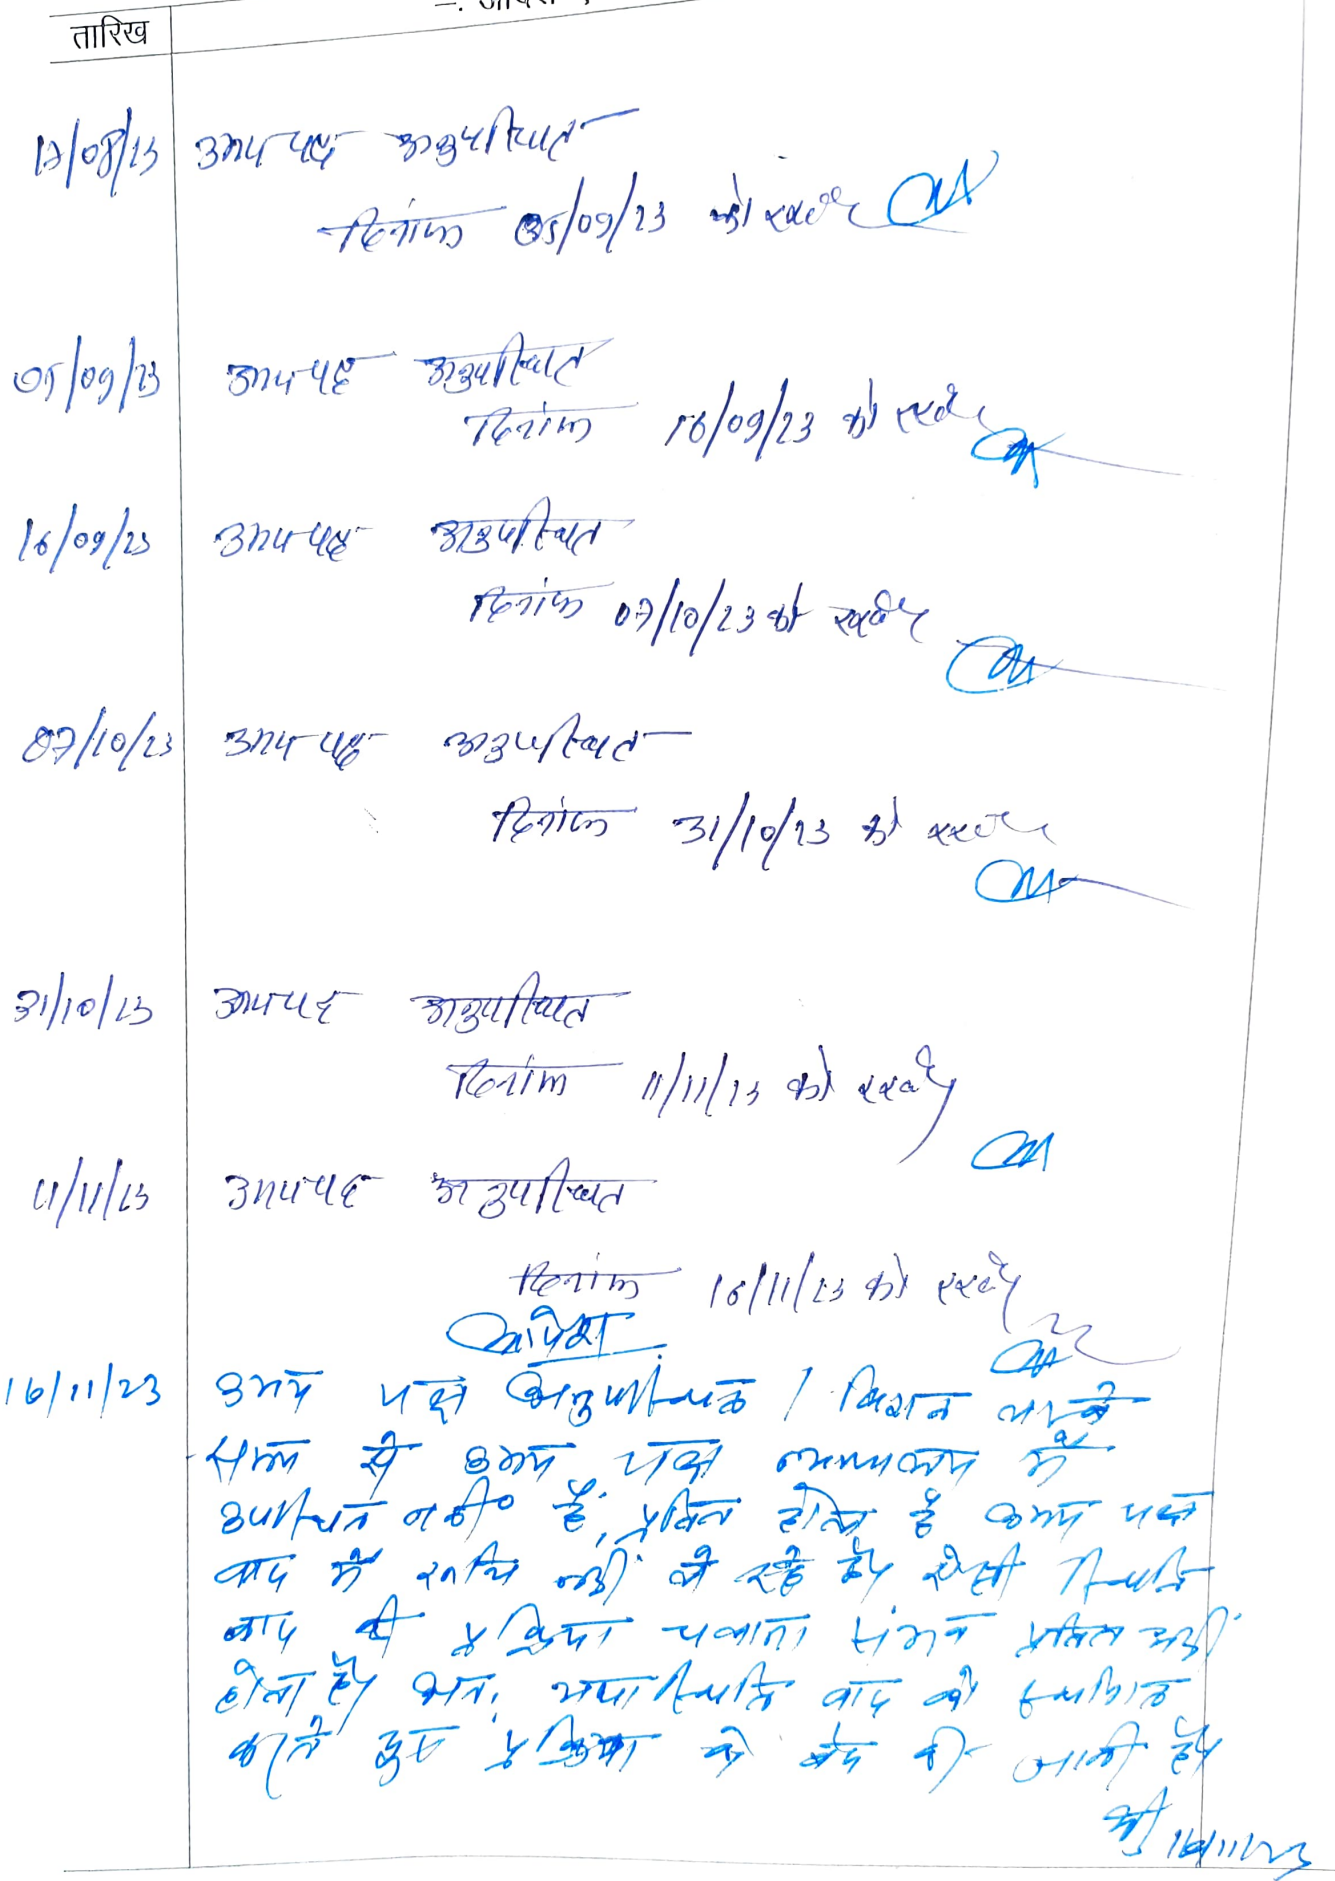 तारिख
17/08/23 उभय पक्ष अनुपस्थित
दिनांक 05/09/23 को रखें
05/09/23 उभय पक्ष अनुपस्थित
दिनांक 16/09/23 को रखें
16/09/23 उभय पक्ष अनुपस्थित
दिनांक 07/10/23 को रखें
07/10/23 उभय पक्ष अनुपस्थित
दिनांक 31/10/23 को रखें
31/10/23 उभय पक्ष अनुपस्थित
दिनांक 11/11/23 को रखें
11/11/23 उभय पक्ष अनुपस्थित
दिनांक 16/11/23 को रखें
आदेश
16/11/23 उभय पक्ष अनुपस्थित। विगत
समय से उभय पक्ष न्यायालय में
उपस्थित नहीं हैं, प्रतित होता है उभय पक्ष
वाद में रूचि नहीं ले रहे हैं। ऐसी स्थिति
वाद की प्रक्रिया चलाना संभव प्रतित नहीं
होता है। अतः यथास्थिति वाद को स्थगित
करते हुए प्रक्रिया को बंद की जाती है।
16/11/23